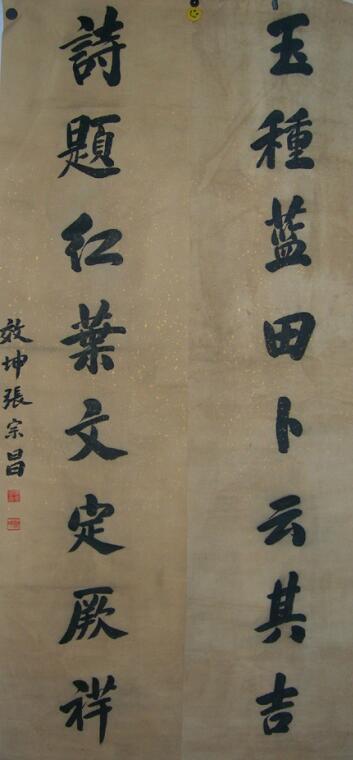 玉種藍田卜云其吉
詩題紅葉文定厥祥
效坤張宗昌